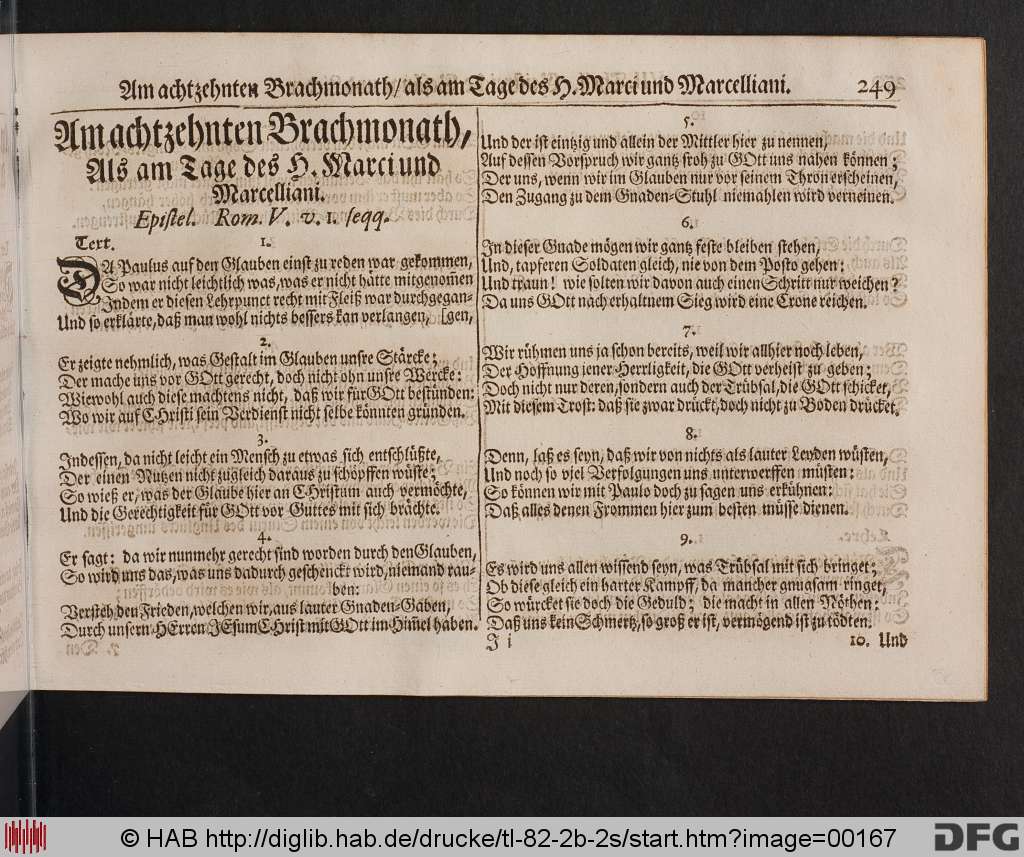 Am achtzehnten Brachmonath/ als am Tage des H. Marci und Marcelliani. 249
Am achtzehnten Brachmonath,
Als am Tage des H. Marci und
Marcelliani.
Epistel. Rom. V. v. 1. seqq.
Text. 1.
DA Paulus auf den Glauben einst zu reden war gekommen,
So war nicht leichtlich was, was er nicht hätte mitgenom̃en
Indem er diesen Lehrpunct recht mit Fleiß war durchgegan-
Und so erklärte, daß man wohl nichts bessers kan verlangen, [gen,
2.
Er zeigte nehmlich, was Gestalt im Glauben unsre Stärcke;
Der mache uns vor GOtt gerecht, doch nicht ohn unsre Wercke:
Wiewohl auch diese machtens nicht, daß wir für GOtt bestünden:
Wo wir auf CHristi sein Verdienst nicht selbe könnten gründen.
3.
Indessen, da nicht leicht ein Mensch zu etwas sich entschlüßte,
Der einen Nutzen nicht zugleich daraus zu schöpffen wüste;
So wieß er, was der Glaube hier an CHristum auch vermöchte,
Und die Gerechtigkeit für GOtt vor Guttes mit sich brächte.
4.
Er sagt: da wir nunmehr gerecht sind worden durch den Glauben,
So wird uns das, was uns dadurch geschenckt wird, niemand rau-
ben:
Versteh den Frieden, welchen wir, aus lauter Gnaden-Gaben,
Durch unsern HErren JEsum CHrist mit GOtt im Him̃el haben.
5.
Und der ist eintzig und allein der Mittler hier zu nennen,
Auf dessen Vorspruch wir gantz froh zu GOtt uns nahen können;
Der uns, wenn wir im Glauben nur vor seinem Thron erscheinen,
Den Zugang zu dem Gnaden-Stuhl niemahlen wird verneinen.
6.
In dieser Gnade mögen wir gantz feste bleiben stehen,
Und, tapferen Soldaten gleich, nie von dem Posto gehen:
Und traun! wie solten wir davon auch einen Schritt nur weichen?
Da uns GOtt nach erhaltnem Sieg wird eine Crone reichen.
7.
Wir rühmen uns ja schon bereits, weil wir allhier noch leben,
Der Hoffnung jener Herrligkeit, die GOtt verheist zu geben;
Doch nicht nur deren, sondern auch der Trübsal, die GOtt schicket,
Mit diesem Trost: daß sie zwar drückt, doch nicht zu Boden drücket.
8.
Denn, laß es seyn, daß wir von nichts als lauter Leyden wüsten,
Und noch so viel Verfolgungen uns unterwerffen müsten:
So können wir mit Paulo doch zu sagen uns erkühnen:
Daß alles denen Frommen hier zum besten müsse dienen.
9.
Es wird uns allen wissend seyn, was Trübsal mit sich bringet;
Ob diese gleich ein harter Kampff, da mancher gnugsam ringet,
So würcket sie doch die Geduld; die macht in allen Nöthen:
Daß uns kein Schmertz, so groß er ist, vermögend ist zu tödten.
J i 10. Und
© HAB http://diglib.hab.de/drucke/tl-82-2b-2s/start.htm?image=00167
DFG